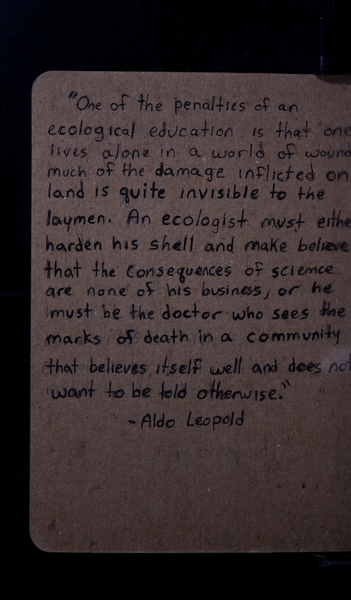 "One of the penalties of an
ecological education is that one
lives alone in a world of wound
much of the damage inflicted on
land is quite invisible to the
laymen. An ecologist must eithe
harden his shell and make believe
that the consequences of science
are none of his business, or he
must be the doctor who sees the
marks of death in a community
that believes itself well and does not
want to be told otherwise."
- Aldo Leopold